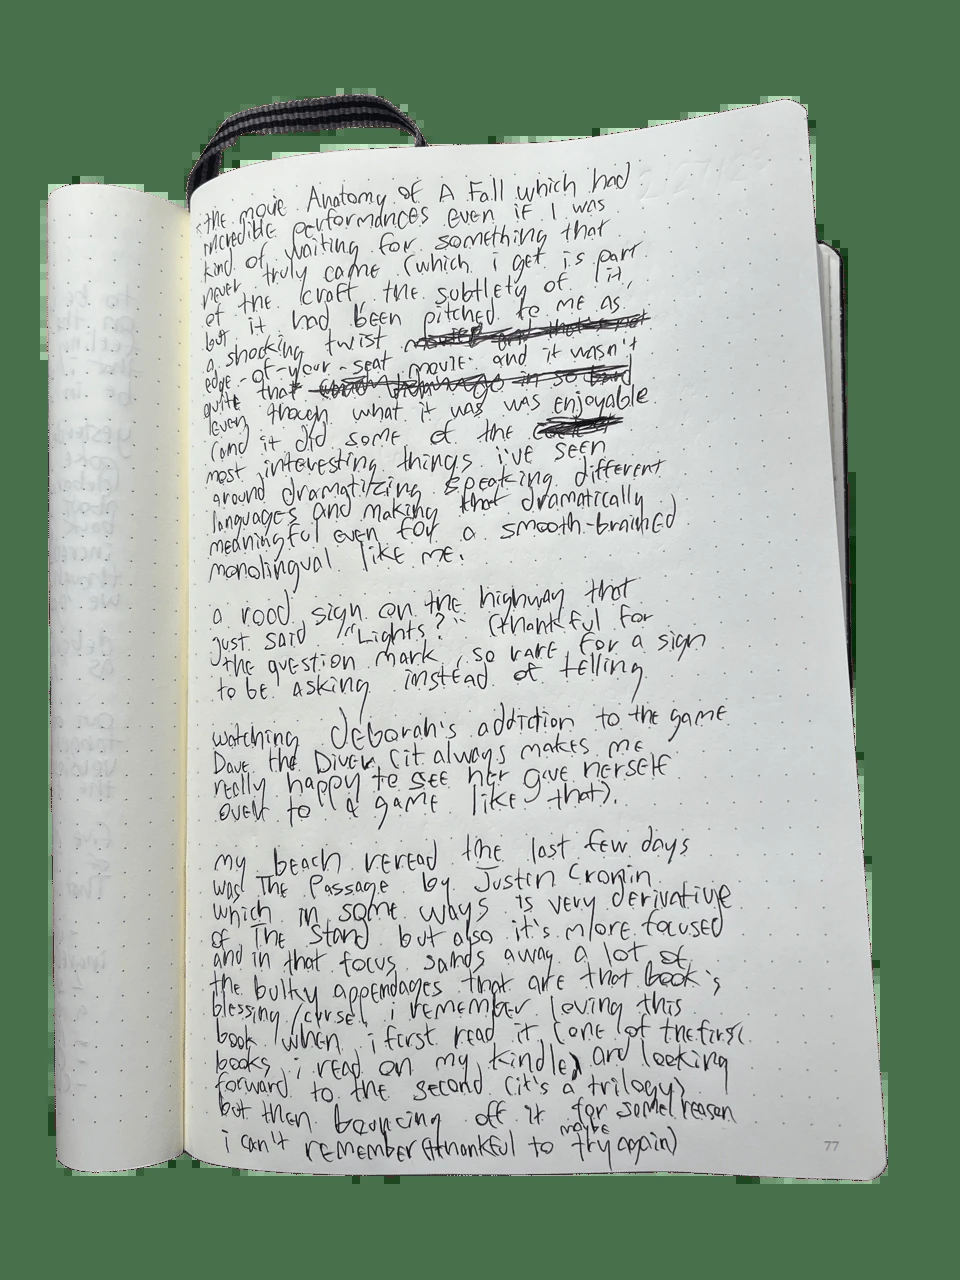 the movie Anatomy of A Fall which had
incredible performances even if I was
kind of waiting for something that
never truly came (which i get is part
of the craft the subtlety of it,
but it had been pitched to me as
a shocking twist
edge-of-your-seat movie. and it wasn't
quite that
even though what it was was enjoyable
(and it did some of the
most interesting things i've seen
around dramatizing speaking different
languages and making that dramatically
meaningful even for a smooth-brained
monolingual like me.
a road sign on the highway that
just said "Lights?" (thankful for
the question mark, so rare for a sign
to be asking instead of telling
watching deborah's addiction to the game
Dave the Diver (it always makes me
really happy to see her give herself
over to a game like that).
my beach reread the last few days
was The Passage by Justin Cronin
which in some ways is very derivative
of The Stand but also it's more focused
and in that focus sands away a lot of
the bulky appendages that are that book's
blessing/curse. i remember loving this
book when i first read it (one of the first
books i read on my kindle) and looking
forward to the second (it's a trilogy)
but then bouncing off it for some reason
i can't remember (thankful to maybe try again)
77